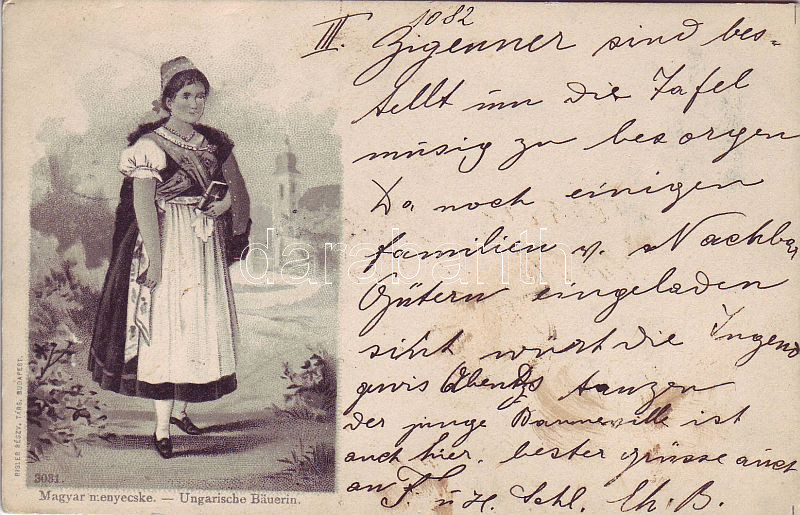 1082
III. Zigeuner sind bes-
tellt um die Tafel
musig zu besorgen
Da noch einigen
familien v. Nachbar
Gütern eingeladen
sint würt die Jugend
gewis Abends tanzen
der junge Banneville ist
auch hier. bester grüsse auch
an F. u H. Schl. Ch. B.
darabanth
RIGLER RÉSZV. TÁRS. BUDAPEST.
3031.
Magyar menyecske. — Ungarische Bäuerin.